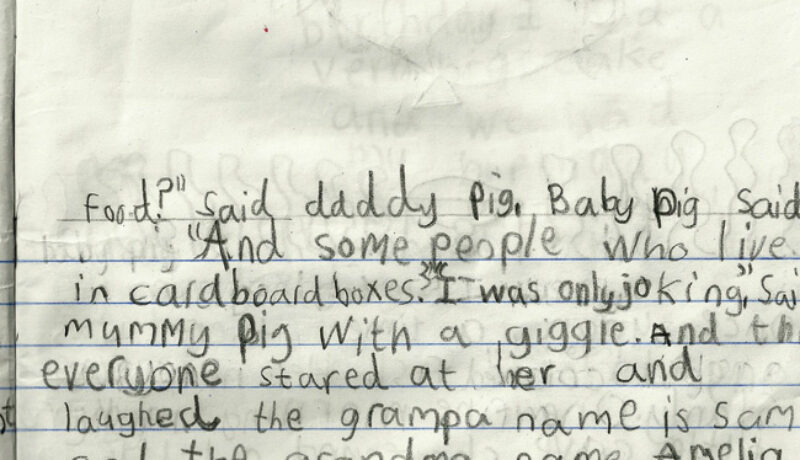 Food?" said daddy pig. Baby pig said
"And some people who live
in cardboard boxes." "I was only joking," sai
mummy pig with a giggle. And th
everyone stared at her and
laughed the grampa name is Sam
and the grandma name Amelia